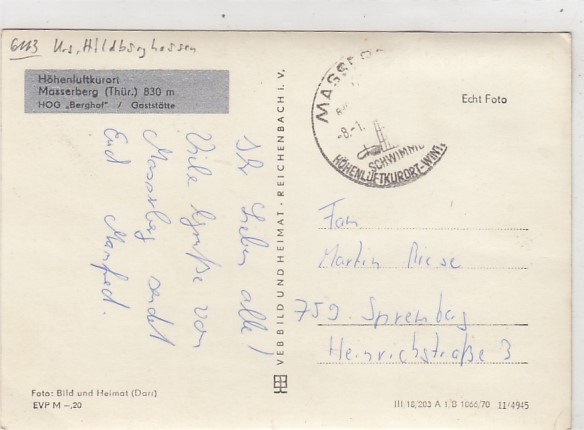 6113 Krs. Hildburghausen
Höhenluftkurort
Masserberg (Thür.) 830 m
HOG „Berghof" / Gaststätte
Ihr Lieben alle!
Viele Grüße von
Masserberg sendet
Euch Manfred.
VEB BILD UND HEIMAT · REICHENBACH I. V.
Foto: Bild und Heimat (Darr)
EVP M –,20
MASSERB
-8.-1.
SCHWIMM
HÖHENLUFTKURORT · WINT
Echt Foto
Fam.
Martin Riese
759. Spremberg
Heinrichstraße 3
III 18/203 A 1/B 1066/70 11/4945